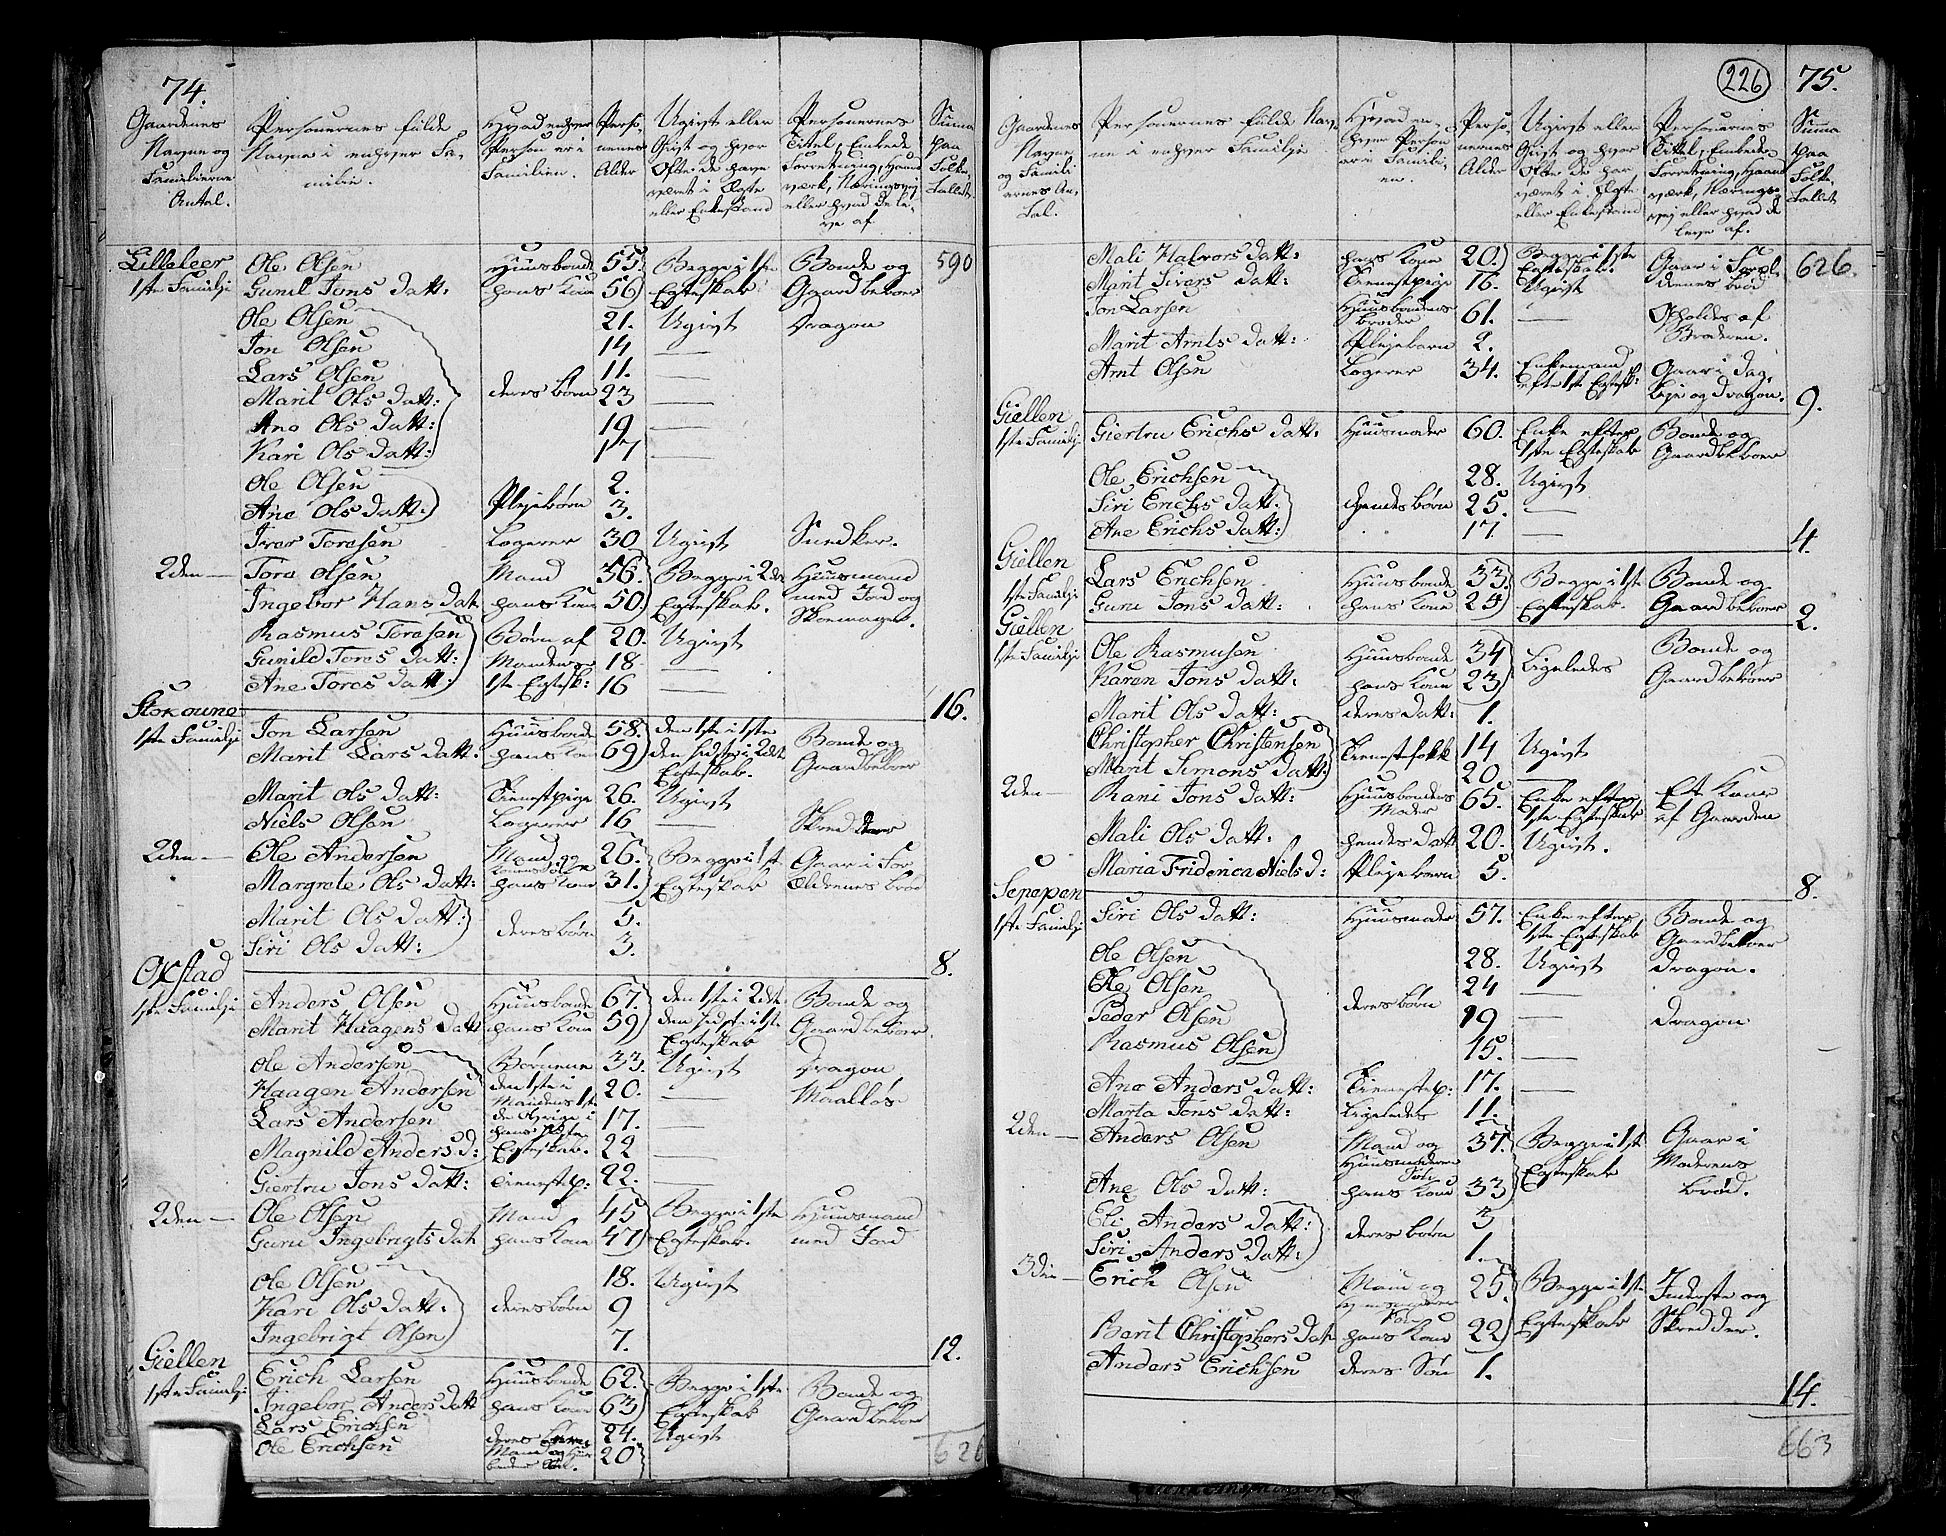 74.
Gaardenes Navne og Familiernes Antal.
Personernes fulde Navne i enhver Familie.
Hvad enhver Person er i Familien.
Personernes Alder
Ugivt eller Givt og hvor Ofte de have været i Ægte eller Enkestand
Personernes Titel, Embede Forretning, Haandværk, Næringsvej eller hvad de leve af
Summa paa Folke-Tallet
Lilleleer Ole Olsen Huusbonde 55. Begge i 1ste Bonde og 590
1ste Familje Gunil Jons Datt: hans Kone 56 Egteskab. Gaardbeboer
Ole Olsen 21. Ugivt Dragon
Jon Olsen 14 —
Lars Olsen 11. —
Marit Ols Datt: deres børn 23 —
Ane Ols Datt: 19
Kari Ols Datt: 17 —
Ole Olsen 2.
Ane Ols Datt: Plejebørn 3.
Iver Toresen Logerer 30 Ugivt
2den — Tore Olsen Mand 56. Begge i 2det Huusmand
Ingebor Hans Dat. hans Kone 50. Egteskab. med Jord og
Rasmus Toresen Børn af 20. Ugivt Skomager.
Gunild Tores Datt: Mandens 18 —
Ane Tores Datt: 1ste Egtesk: 16 — 16.
1ste Familje Jon Larsen Huusbonde 58. den 1ste i 1ste Bonde og
Marit Lars Datt. hans Kone 69 den sidste i 2det Gaardbeboer
Egteskab.
Marit Ols Datt: Tienestpige 26. Ugivt
Niels Olsen Logerer 16 —
2den — Ole Andersen Mand 26. Begge i 1st Gaar i For
Margrete Ols Datt: hans Kone 31. Egteskab Ældrenes brød
Marit Ols Datt: 5.
Siri Ols Datt: deres børn 3. 8.
Oxstad
1ste Familje Anders Olsen Huusbonde 67. den 1ste i 2det Bonde og
Marit Haagens Datt hans Kone 59 den sidste i 1ste Gaardbeboer.
Egteskab
Ole Andersen Børnene 33. Ugivt Dragon
Haagen Andersen den 1ste i 20. — Maallös
Lars Andersen Mandens 1ste 17. —
de øvrige i hans sidste
Magnild Anders D: Egteskab. 22 —
Giertru Jons Datt: Tienestp: 22. —
2den — Ole Olsen Mand 45 Begge i 1ste Huusmand
Guru Ingebrigts Dat. hans Kone 47 Egteskab. med Jord
Ole Olsen 18. Ugivt
Kari Ols Datt: deres børn 9
Ingebrigt Olsen 7. 12.
Giellen
1ste Familje Erich Larsen Huusbonde 62. Begge i 1ste Bonde og
Ingebor Anders Datt hans Kone 63 Egteskab Gaardbeboer
Lars Erichsen 24. Ugivt
Ole Erichsen 20 626
226 75.
Gaardenes Navne og Familiernes Antal.
Personernes fulde Navne i enhver Familje
Hvad enhver Person er i Familien.
Personernes Alder
Ugivt eller Givt og hvor Ofte de har været i Ægte eller Enkestand
Personernes Titel, Embede, Forretning, Haandværk, Næringsvej eller hvad de leve af.
Summa paa Folke-Tallet
Mali Halvors Datt: hans Kone 20. Begge i 1ste Gaar i Forældrenes brød 626.
Egteskab.
Marit Sivers Datt: Tienestpige 16. Ugivt
Jon Larsen Huusbondens Broder 61. — Opholdes af Broderen.
Marit Arnts Datt: Plejebarn 2.
Arnt Olsen Logerer 34. Enkemand Gaar i Dag,
efter 1ste Egtesk: leje og Dragon. 9.
Giellen
1ste Familje Giertru Erichs Datt: Huusmoder 60. Enke efter Bonde og
1ste Egteskab Gaardbeboer
Ole Erichsen 28. Ugivt
Siri Erichs Datt: hendes børn 25. —
Ane Erichs Datt: 17. — 4.
Giellen Lars Erichsen Huusbonde 33. Begge i 1ste Bonde og
1ste Familje Guru Jons Datt: hans Kone 24 Egteskab. Gaardbeboer 2.
Giellen
1ste Familje Ole Rasmusen Huusbonde 34 Ligeledes Bonde og
Karen Jons Datt: hans Kone 23 Gaardbeboer
Marit Ols Datt: deres Datt: 1.
Christopher Christensen Tienestfolk 14 Ugivt
Marit Simons Datt: 20.
2den — Rani Jons Datt: Huusbondens Moder 65. Enke efter 1ste Egteskab Et Kaar af Gaarden
Mali Ols Datt: hendes Datt 20. Ugivt.
Maria Friderica Niels D: Plejebarn 5. 8.
1ste Familje Siri Ols Datt: Huusmoder 57. Enke efter Bonde og
1ste Egteskab Gaardbeboer
Ole Olsen 28. Ugivt Dragon.
Ole Olsen 24 —
Peder Olsen deres børn 19 — Dragon
Rasmus Olsen 15. —
Ane Anders Datt: Tienestep: 17. —
Marta Jons Datt: Ligeledes 11.
2den — Anders Olsen Mand og 37. Begge i 1ste Gaar i
Ane Ols Datt: hans Kone 33 Egteskab Moderens brød.
Eli Anders Datt: 3
Siri Anders Datt: deres børn 1.
3die — Erich Olsen Mand og 25. Begge i 1ste Inderste og
Berit Christophers Dat. hans Kone 22 Egteskab Skredder.
Anders Erichsen deres Søn 1.
14.
663